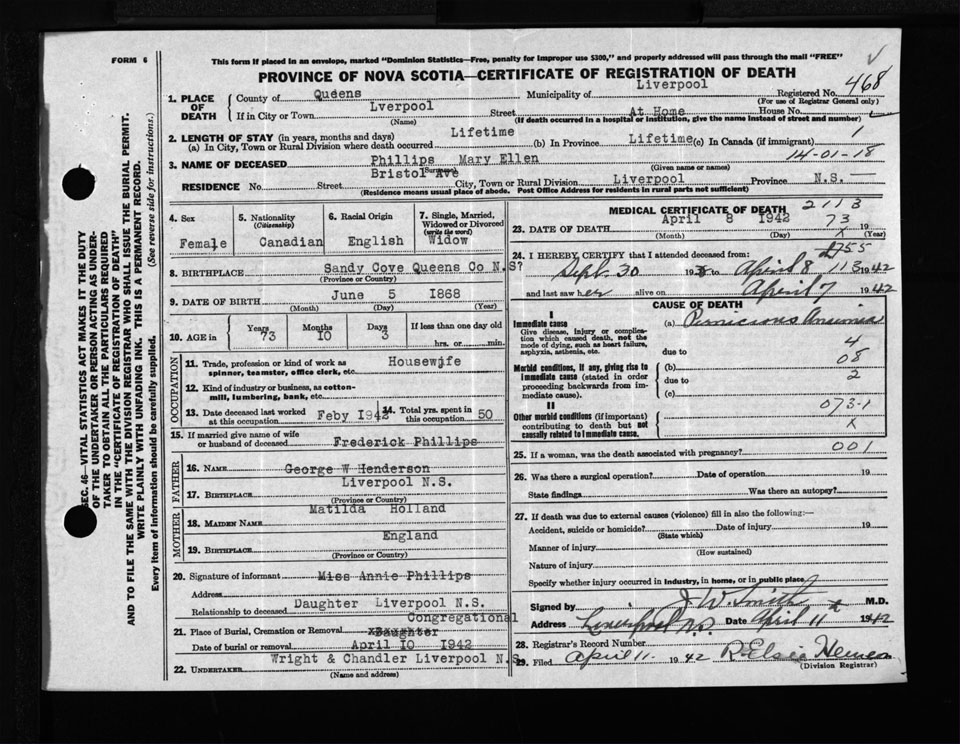 FORM 6
This form if placed in an envelope, marked "Dominion Statistics—Free, penalty for improper use $300," and properly addressed will pass through the mail "FREE"
PROVINCE OF NOVA SCOTIA—CERTIFICATE OF REGISTRATION OF DEATH
468
1. PLACE OF DEATH
County of Queens Municipality of Liverpool Registered No.
(For use of Registrar General only)
If in City or Town Lverpool Street At Home House No.
(Name) (If death occurred in a hospital or institution, give the name instead of street and number)
2. LENGTH OF STAY (in years, months and days)
(a) In City, Town or Rural Division where death occurred Lifetime (b) In Province Lifetime (c) In Canada (if immigrant) 1
14-01-18
3. NAME OF DECEASED Phillips Mary Ellen
Surname (Given name or names)
RESIDENCE No. Street Bristol Ave City, Town or Rural Division Liverpool Province N.S.
(Residence means usual place of abode. Post Office Address for residents in rural parts not sufficient)
4. Sex Female
5. Nationality (Citizenship) Canadian
6. Racial Origin English
7. Single, Married, Widowed or Divorced (write the word) Widow
8. BIRTHPLACE Sandy Cove Queens Co N.S?
(Province or Country)
9. DATE OF BIRTH June 5 1868
(Month) (Day) (Year)
10. AGE in Years 73 Months 10 Days 3 If less than one day old hrs. or min.
OCCUPATION
11. Trade, profession or kind of work as spinner, teamster, office clerk, etc. Housewife
12. Kind of industry or business, as cotton-mill, lumbering, bank, etc.
13. Date deceased last worked at this occupation Feby 1942 14. Total yrs. spent in this occupation 50
15. If married give name of wife or husband of deceased Frederick Phillips
FATHER
16. NAME George W Henderson
17. BIRTHPLACE Liverpool N.S.
(Province or Country)
MOTHER
18. MAIDEN NAME Matilda Holland
19. BIRTHPLACE England
(Province or Country)
20. Signature of informant Miss Annie Phillips
Address
Relationship to deceased Daughter Liverpool N.S.
Congregational
21. Place of Burial, Cremation or Removal Daughter
Date of burial or removal April 10 1942
22. UNDERTAKER Wright & Chandler Liverpool N.S
(Name and address)
MEDICAL CERTIFICATE OF DEATH 2113
23. DATE OF DEATH April 8 1942 73
(Month) (Day) X 19 (Year)
24. I HEREBY CERTIFY that I attended deceased from: 2755
Sept. 30 19 to April 8 113 1942
and last saw her alive on April 7 1942
CAUSE OF DEATH
I
Immediate cause
Give disease, injury or complication which caused death, not the mode of dying, such as heart failure, asphyxia, asthenia, etc.
(a) Pernicious Anaemia
due to 4
Morbid conditions, if any, giving rise to immediate cause (stated in order proceeding backwards from immediate cause).
(b) 08
due to 2
(c)
II
Other morbid conditions (if important) contributing to death but not causally related to immediate cause.
073-1
X
25. If a woman, was the death associated with pregnancy? 001
26. Was there a surgical operation? Date of operation 19
State findings Was there an autopsy?
27. If death was due to external causes (violence) fill in also the following:—
Accident, suicide or homicide? Date of injury 19
(State which)
Manner of injury
(How sustained)
Nature of injury
Specify whether injury occurred in industry, in home, or in public place
Signed by J W Smith M.D.
Address Liverpool N.S. Date April 11 1942
28. Registrar's Record Number
29. Filed April 11. 1942 R Elsie
(Division Registrar)
SEC. 46—VITAL STATISTICS ACT MAKES IT THE DUTY
OF THE UNDERTAKER OR PERSON ACTING AS UNDER-
TAKER TO OBTAIN ALL THE PARTICULARS REQUIRED
IN THE "CERTIFICATE OF REGISTRATION OF DEATH"
AND TO FILE THE SAME WITH THE DIVISION REGISTRAR WHO SHALL ISSUE THE BURIAL PERMIT.
WRITE PLAINLY WITH UNFADING INK. THIS IS A PERMANENT RECORD.
Every item of information should be carefully supplied. (See reverse side for instructions.)